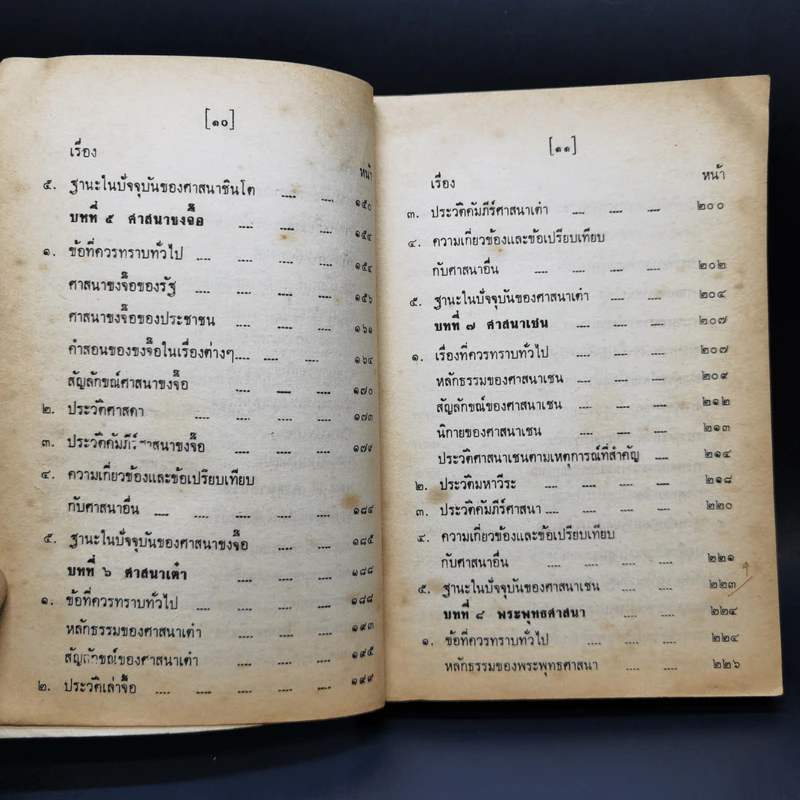 [๑๐]
เรื่อง หน้า
๕. ฐานะในปัจจุบันของศาสนาชินโต .... .... ๑๕๐
บทที่ ๕ ศาสนาขงจื๊อ .... .... .... ๑๕๔
๑. ข้อที่ควรทราบทั่วไป .... .... .... .... ๑๕๔
ศาสนาขงจื๊อของรัฐ .... .... .... .... ๑๕๖
ศาสนาขงจื๊อของประชาชน .... .... .... ๑๖๑
คำสอนของขงจื๊อในเรื่องต่างๆ .... .... .... ๑๖๔
สัญลักขณ์ศาสนาขงจื๊อ .... .... .... ๑๗๐
๒. ประวัติศาสดา .... .... .... .... ๑๗๓
๓. ประวัติคัมภีร์ศาสนาขงจื๊อ .... .... .... ๑๗๙
๔. ความเกี่ยวข้องและข้อเปรียบเทียบ
กับศาสนาอื่น .... .... .... .... .... ๑๘๔
๕. ฐานะในปัจจุบันของศาสนาขงจื๊อ .... .... ๑๘๕
บทที่ ๖ ศาสนาเต๋า .... .... .... .... ๑๘๘
๑. ข้อที่ควรทราบทั่วไป .... .... .... .... ๑๘๘
หลักธรรมของศาสนาเต๋า .... .... .... ๑๙๓
สัญลักขณ์ของศาสนาเต๋า .... .... .... ๑๙๕
๒. ประวัติเล่าจื๊อ .... .... .... .... .... ๑๙๙
[๑๑]
เรื่อง หน้า
๓. ประวัติคัมภีร์ศาสนาเต๋า .... .... .... ๒๐๐
๔. ความเกี่ยวข้องและข้อเปรียบเทียบ
กับศาสนาอื่น .... .... .... .... ๒๐๒
๕. ฐานะในปัจจุบันของศาสนาเต๋า .... .... ๒๐๔
บทที่ ๗ ศาสนาเชน .... .... .... ๒๐๗
๑. เรื่องที่ควรทราบทั่วไป .... .... .... ๒๐๗
หลักธรรมของศาสนาเชน .... .... .... ๒๐๙
สัญลักขณ์ของศาสนาเชน .... .... .... ๒๑๒
นิกายของศาสนาเชน .... .... .... ๒๑๓
ประวัติศาสนาเชนตามเหตุการณ์ที่สำคัญ .... ๒๑๔
๒. ประวัติมหาวีระ .... .... .... .... ๒๑๘
๓. ประวัติคัมภีร์ศาสนา .... .... .... .... ๒๒๐
๔. ความเกี่ยวข้องและข้อเปรียบเทียบ
กับศาสนาอื่น .... .... .... .... ๒๒๑
๕. ฐานะในปัจจุบันของศาสนาเชน .... .... ๒๒๓
บทที่ ๘ พระพุทธศาสนา .... .... ๒๒๔
๑. ข้อที่ควรทราบทั่วไป .... .... .... ๒๒๔
หลักธรรมของพระพุทธศาสนา .... .... ๒๒๖